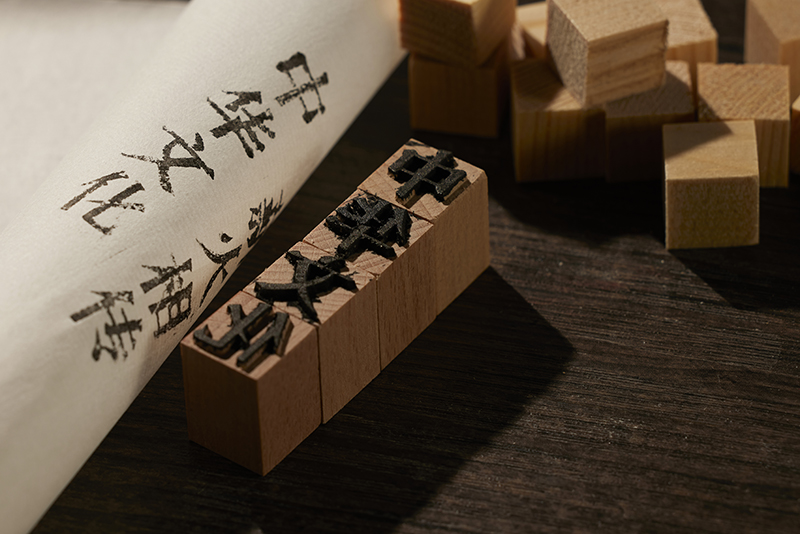 中华文化
薪火相传
中华文化